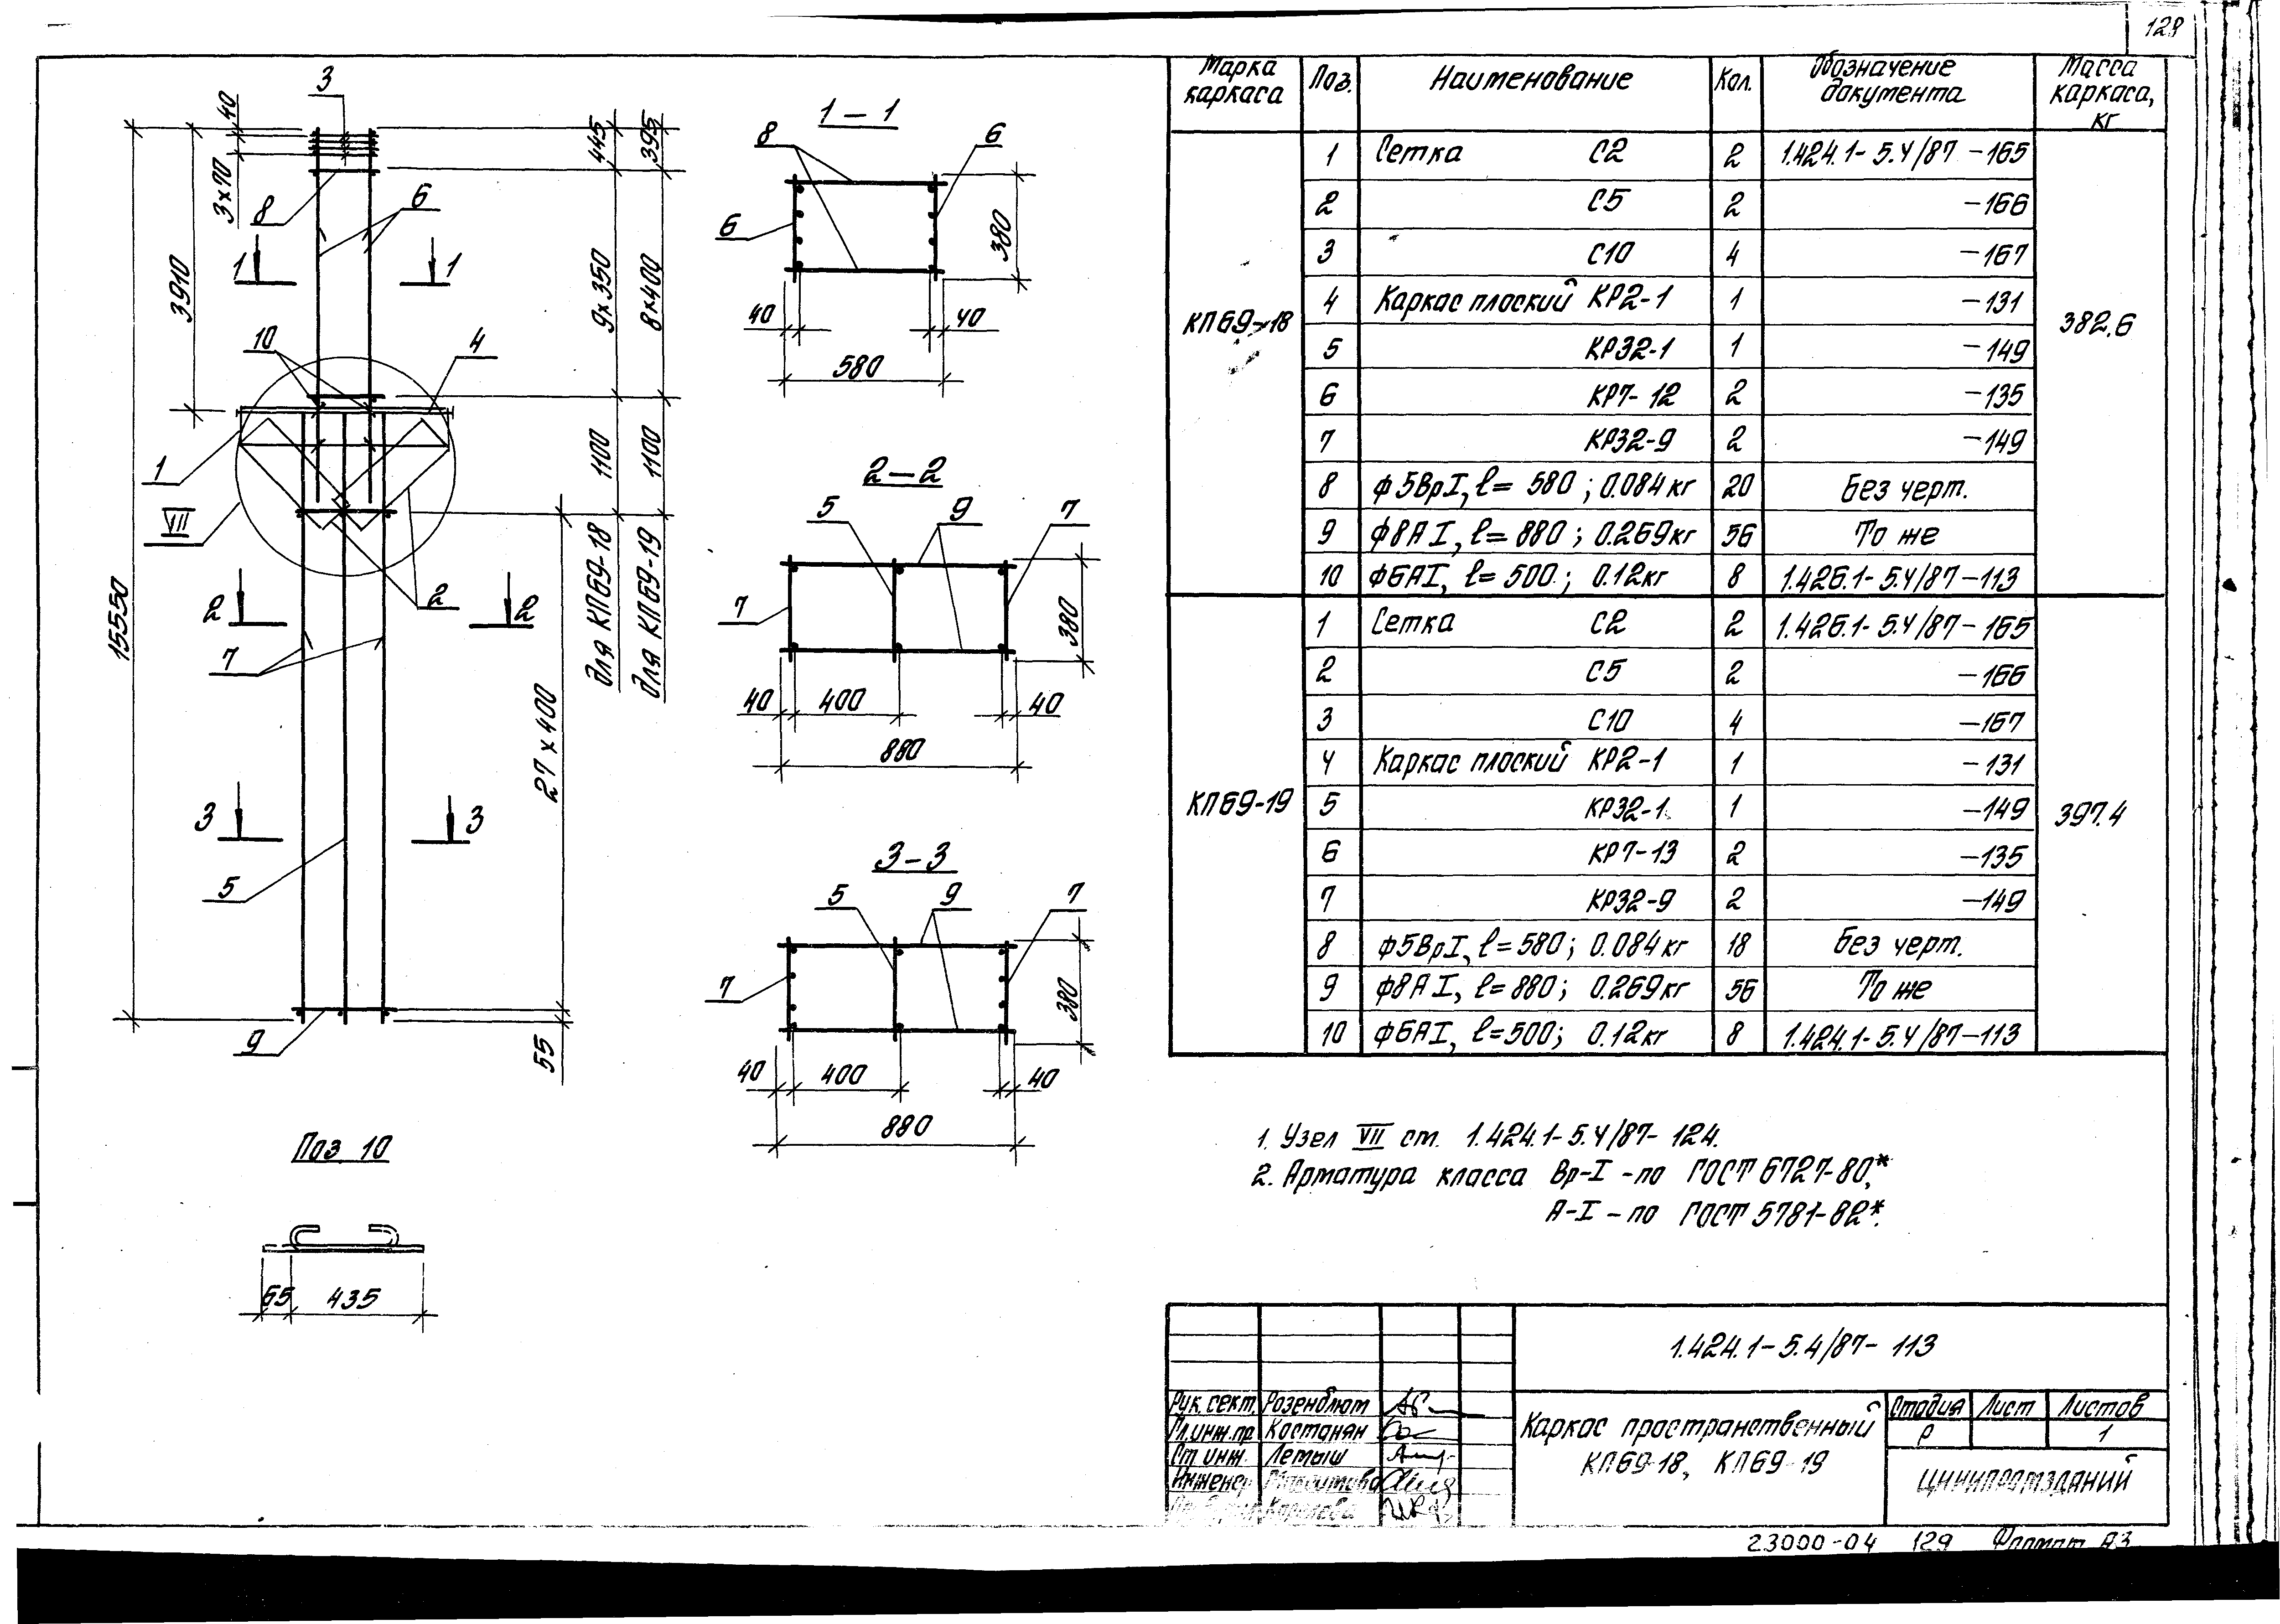 128
3
40
3×70
3910
15550
8
6
1
1
10
4
1
VII
2
2
2
7
3
3
5
9
445
395
9×350
8×400
1100
1100
для КП69-18
для КП69-19
27×400
55
1-1
8
6
6
380
40
40
580
2-2
5
9
7
7
380
40
400
40
880
3-3
5
9
7
7
380
40
400
40
880
Поз. 10
65
435
Марка каркаса Поз. Наименование Кол. Обозначение документа Масса каркаса, кг
КП69-18
382.6
1 Сетка С2 2 1.424.1-5.4/87-165
2 С5 2 -166
3 С10 4 -167
4 Каркас плоский КР2-1 1 -131
5 КР32-1 1 -149
6 КР7-12 2 -135
7 КР32-9 2 -149
8 ϕ5ВрI, ℓ= 580; 0.084 кг 20 Без черт.
9 ϕ8АI, ℓ=880; 0.269кг 56 То же
10 ϕ6АI, ℓ=500; 0.12кг 8 1.426.1-5.4/87-113
КП69-19
397.4
1 Сетка С2 2 1.426.1-5.4/87-165
2 С5 2 -166
3 С10 4 -167
4 Каркас плоский КР2-1 1 -131
5 КР32-1 1 -149
6 КР7-13 2 -135
7 КР32-9 2 -149
8 ϕ5ВрI, ℓ=580; 0.084 кг 18 Без черт.
9 ϕ8АI, ℓ=880; 0.269кг 56 То же
10 ϕ6АI, ℓ=500; 0.12кг 8 1.424.1-5.4/87-113
1. Узел VII ст. 1.424.1-5.4/87-124.
2. Арматура класса Вр-I -по ГОСТ 6727-80*,
А-I -по ГОСТ 5781-82*.
1.424.1-5.4/87-113
Рук. сект. Розенблюм
Гл.инж.пр. Костанян
Ст. инж. Летыш
Инженер
Каркас пространственный
КП69-18, КП69-19
Стадия Лист Листов
Р 1
ЦНИИПРОМЗДАНИЙ
23000-04 129 Формат А3